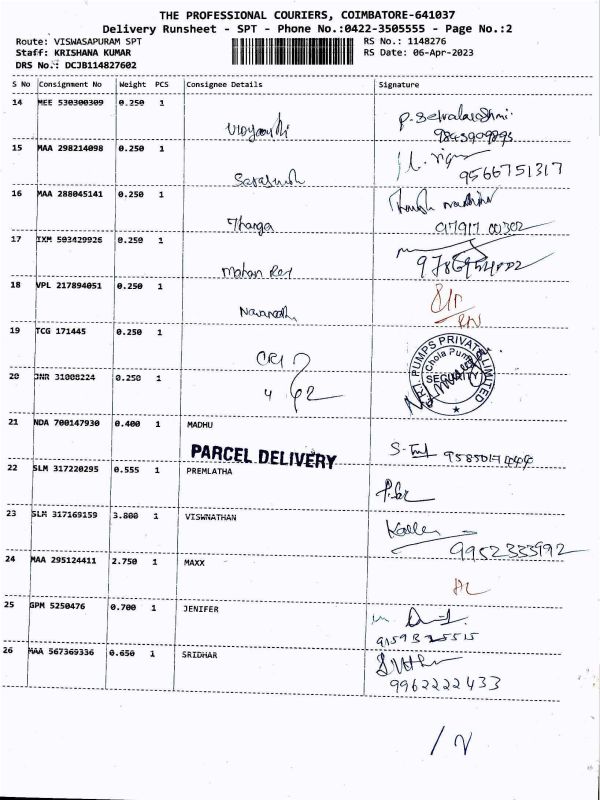 THE PROFESSIONAL COURIERS, COIMBATORE-641037
Delivery Runsheet - SPT - Phone No.:0422-3505555 - Page No.:2
Route: VISWASAPURAM SPT RS No.: 1148276
Staff: KRISHANA KUMAR RS Date: 06-Apr-2023
DRS No.: DCJB114827602
S No Consignment No Weight PCS Consignee Details Signature
14 MEE 530300309 0.250 1
9843909893
15 MAA 298214098 0.250 1
9566751317
16 MAA 288045141 0.250 1 Thanga
17 IXM 503429926 0.250 1 Mohan
18 VPL 217894051 0.250 1
19 TCG 171445 0.250 1 CRI
R.I. PUMPS PRIVATE LIMITED
Chola Pump
SECURITY
20 JNR 31008224 0.250 1 4
21 NDA 700147930 0.400 1 MADHU
PARCEL DELIVERY
22 SLM 317220295 0.555 1 PREMLATHA
23 SLM 317169159 3.800 1 VISWNATHAN
9952333992
24 MAA 295124411 2.750 1 MAXX
25 GPM 5250476 0.700 1 JENIFER
26 MAA 567369336 0.650 1 SRIDHAR
9962222433